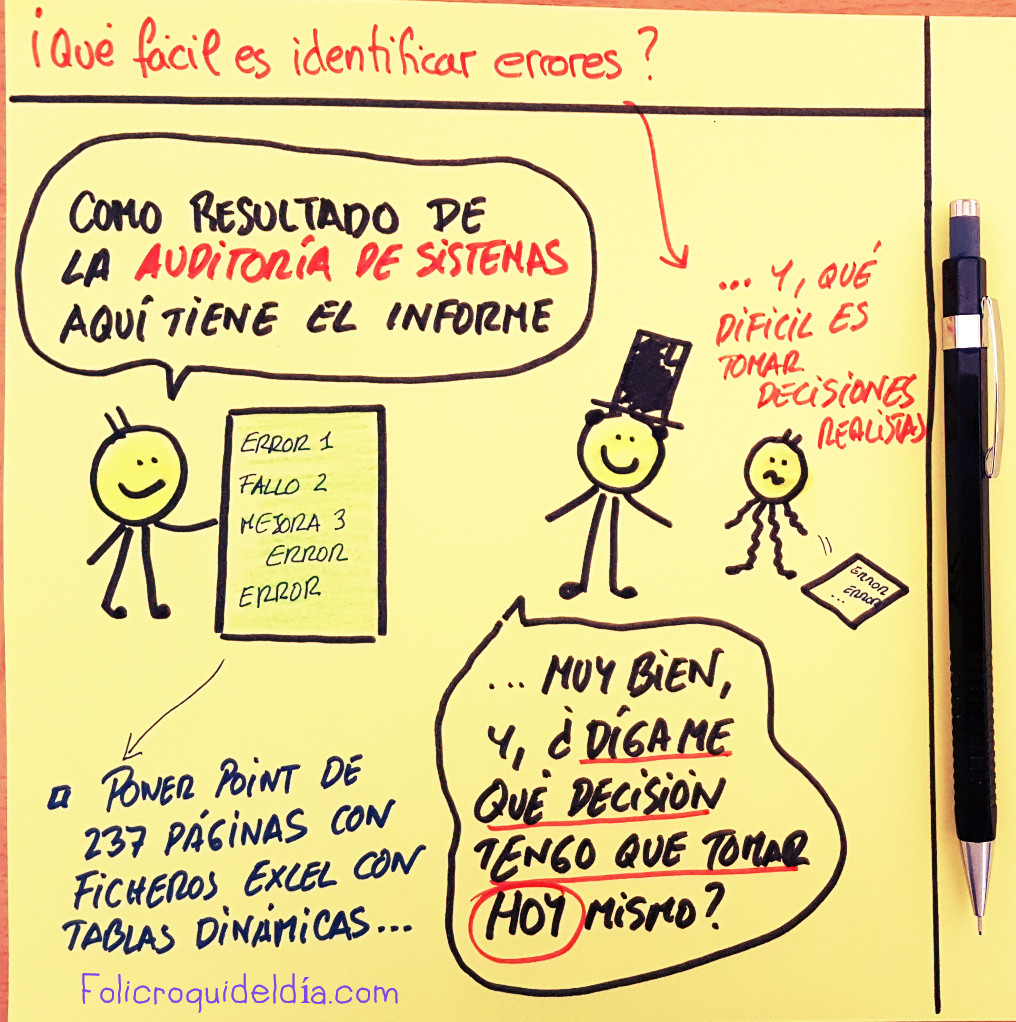 ¡Qué fácil es identificar errores?
COMO RESULTADO DE
LA AUDITORÍA DE SISTEMAS
AQUÍ TIENE EL INFORME
... Y, QUÉ
DIFICIL ES
TOMAR
DECISIONES
REALISTAS
ERROR 1
FALLO 2
MEJORA 3
ERROR
ERROR
ERROR
ERROR
...
... MUY BIEN,
Y, ¿DÍGAME
QUÉ DECISIÓN
TENGO QUE TOMAR
HOY MISMO?
POWER POINT DE
237 PÁGINAS CON
FICHEROS EXCEL CON
TABLAS DINÁMICAS...
Folicroquideldía.com